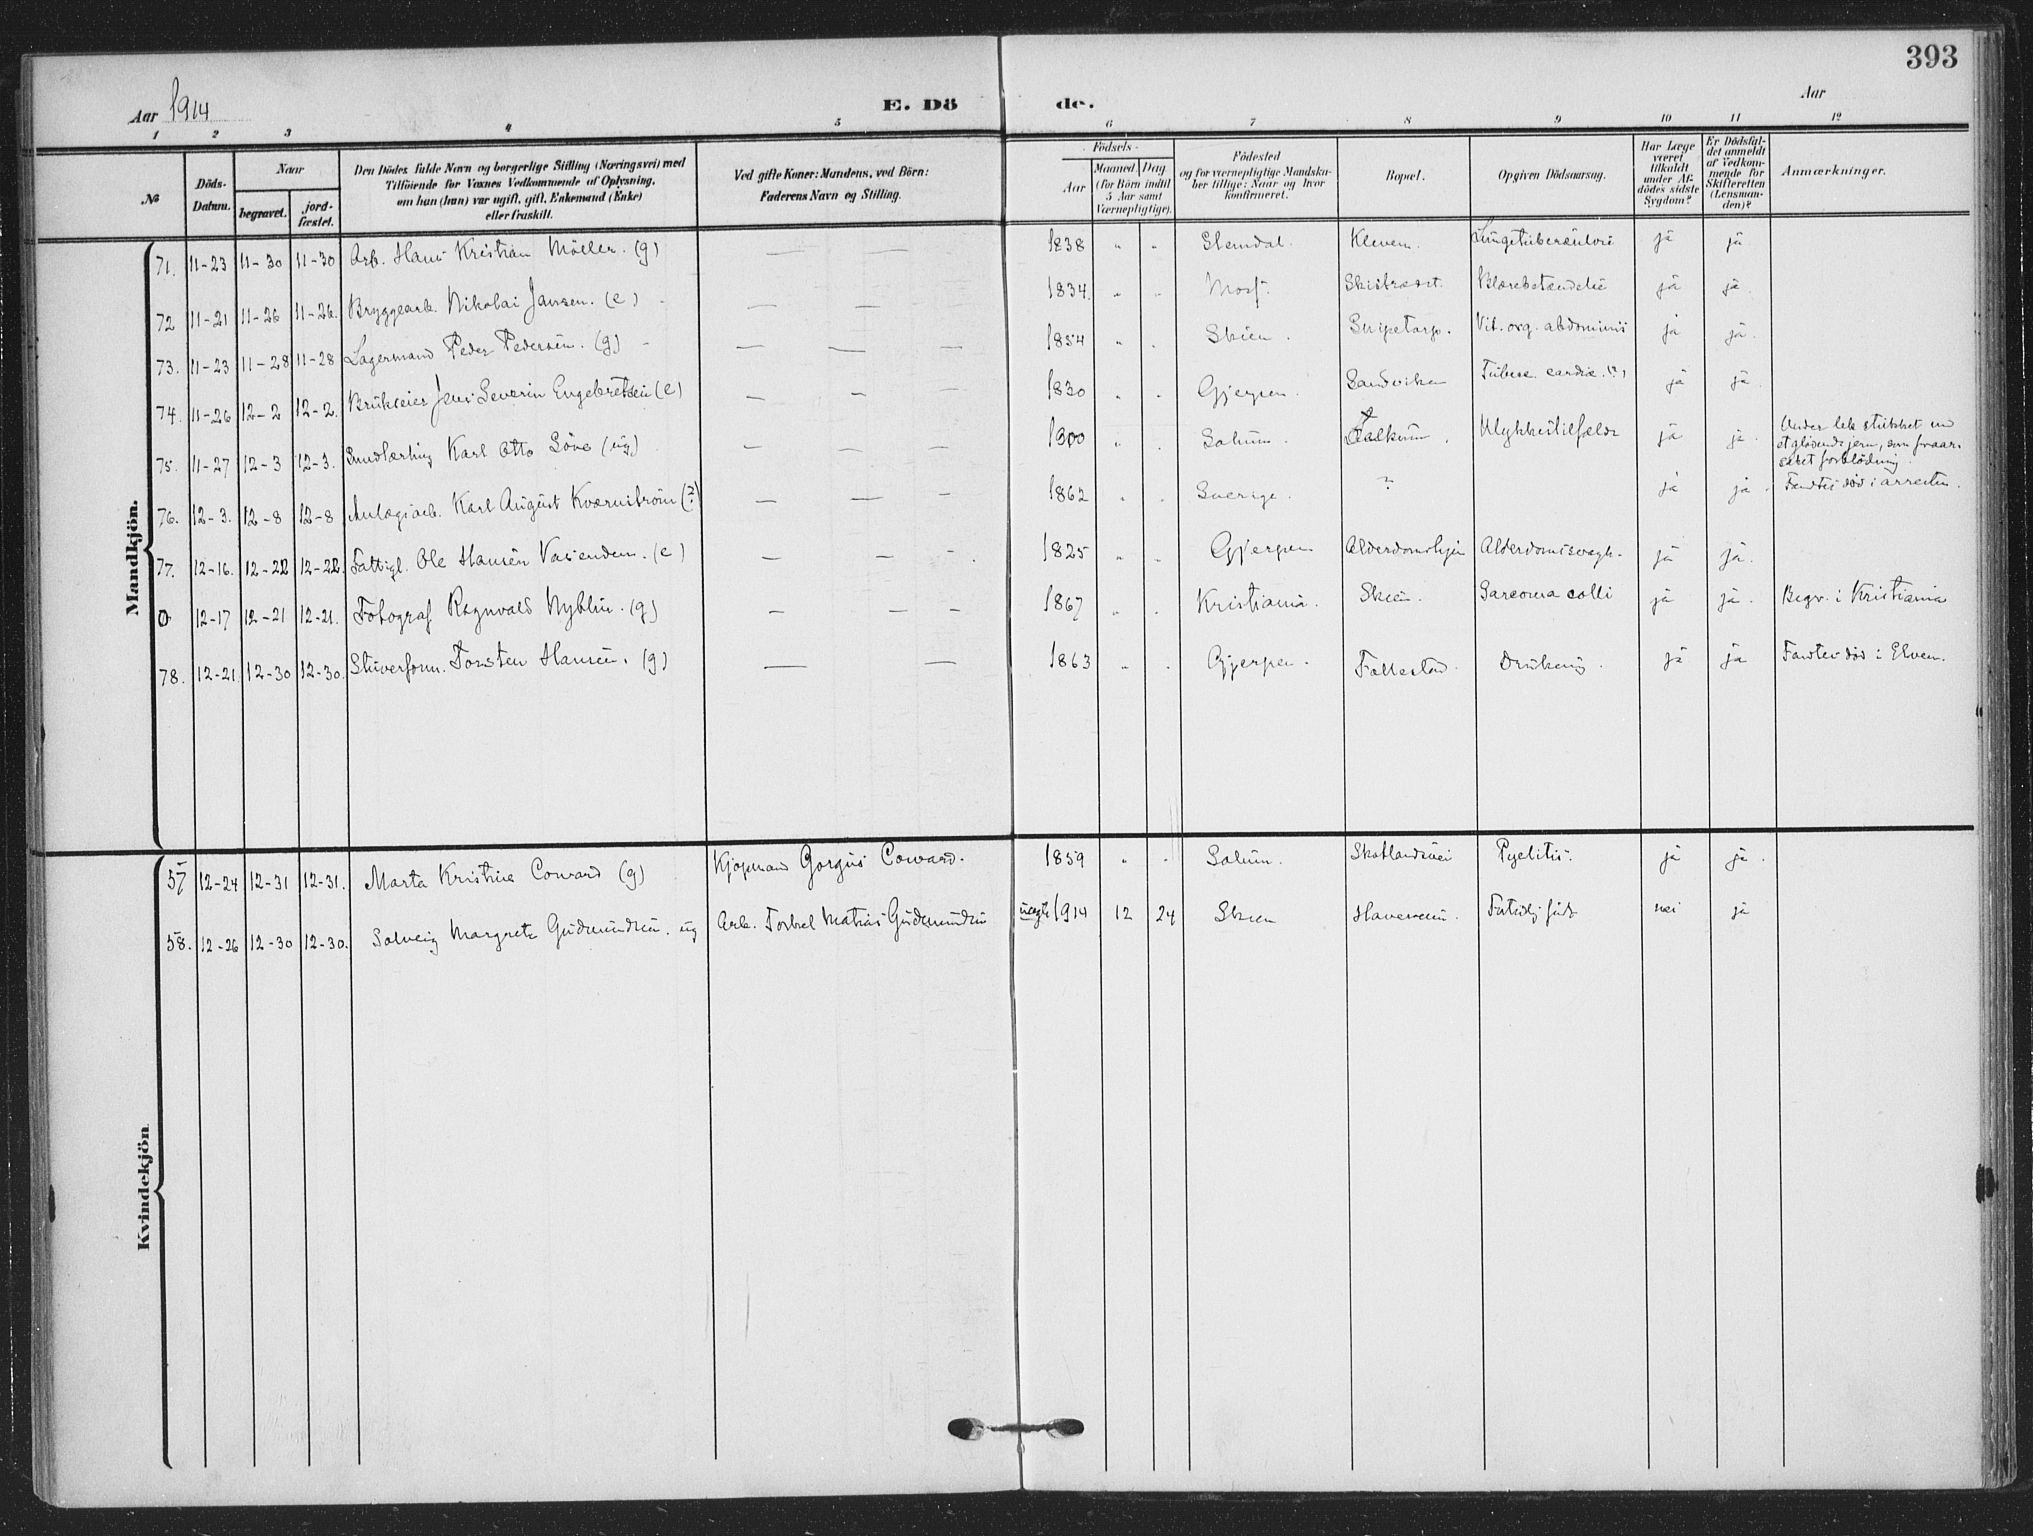 393
Aar 1914
E. Dö
de.
Aar
1 2 3 4 5 6 7 8 9 10 11 12
№
Döds-
Datum.
Naar
begravet.
jord-
fæstet.
Den Dödes fulde Navn og borgerlige Stilling (Næringsvei) med
Tilföiende for Voxnes Vedkommende af Oplysning,
om han (hun) var ugift, gift, Enkemand (Enke)
eller fraskilt.
Ved gifte Koner: Mandens, ved Börn:
Faderens Navn og Stilling.
Födsels-
Aar
Maaned
Dag
(for Börn indtil
5 Aar samt
Værnepligtige).
Födested
og for værnepligtige Mandska-
ber tillige: Naar og hvor
konfirmeret.
Bopæl.
Opgiven Dödsaarsag.
Har Læge
været
tilkaldt
under Af-
dödes sidste
Sygdom?
Er Dödsfal-
det anmeldt
af Vedkom-
mende for
Skifteretten
(Lensman-
den)?
Anmærkninger.
Mandkjön.
71. 11-23 11-30 11-30 Arb. Hans Kristian Möller. (g) — — — 1838 " " Slemdal. Kleven. Lungetuberculose ja ja
72 11-21 11-26 11-26. Bryggearb. Nikolai Jansen. (e) — — 1834. " " Moss. Blærebetændelse ja ja.
73. 11-23 11-28 11-28 Lagermand Peder Pedersen. (g) — — — 1854 " " Skien. Snipetorp. Vit. org. abdominis ja ja.
74. 11-26 12-2 12-2. Brukseier Jens Severin Engebretsen (e) — — 1830 " " Gjerpen. Sandviken cardiæ. (?) ja ja.
75. 11-27 12-3 12-3. Karl Otto (ug) — — — " " Solum. Ulykkestilfælde ja ja. Under lek stukket
et glödende jern, som foraar-
saket forblödning.
76. 12-3. 12-8 12-8 Anlægsarb. Karl August Kvarnström (?) — — — 1862 " " Sverige. ? ja ja. Fandtes död i arresten.
77. 12-16. 12-22 12-22. Fattigl. Ole Hansen Vasenden. (e) — — 1825 " " Gjerpen Alderdomshjem Alderdomssvagh. ja ja.
0 12-17 12-21 12-21. Fotograf Ragnvald Nyblin. (g) — — — 1867 " " Kristiania. Skien. Sarcoma colli ja ja. Begr. i Kristiania
78. 12-21. 12-30 12-30. Stuverform. Torsten Hansen. (g) — — 1863 " " Gjerpen. Follestad. Drukning. ja ja Fandtes död i Elven.
Kvindekjön
57 12-24 12-31 12-31. Marta Kristine Coward (g) Kjöpmand Gorgus Coward. 1859 " " Solum. Skotlandsvei Pyelitis. ja ja.
58. 12-26 12-30 12-30. Solveig Margrete Gudmundsen. ug Arb. Torkel Matias Gudmundsen uegte 1914 12 24 Skien For tidlig född nei ja